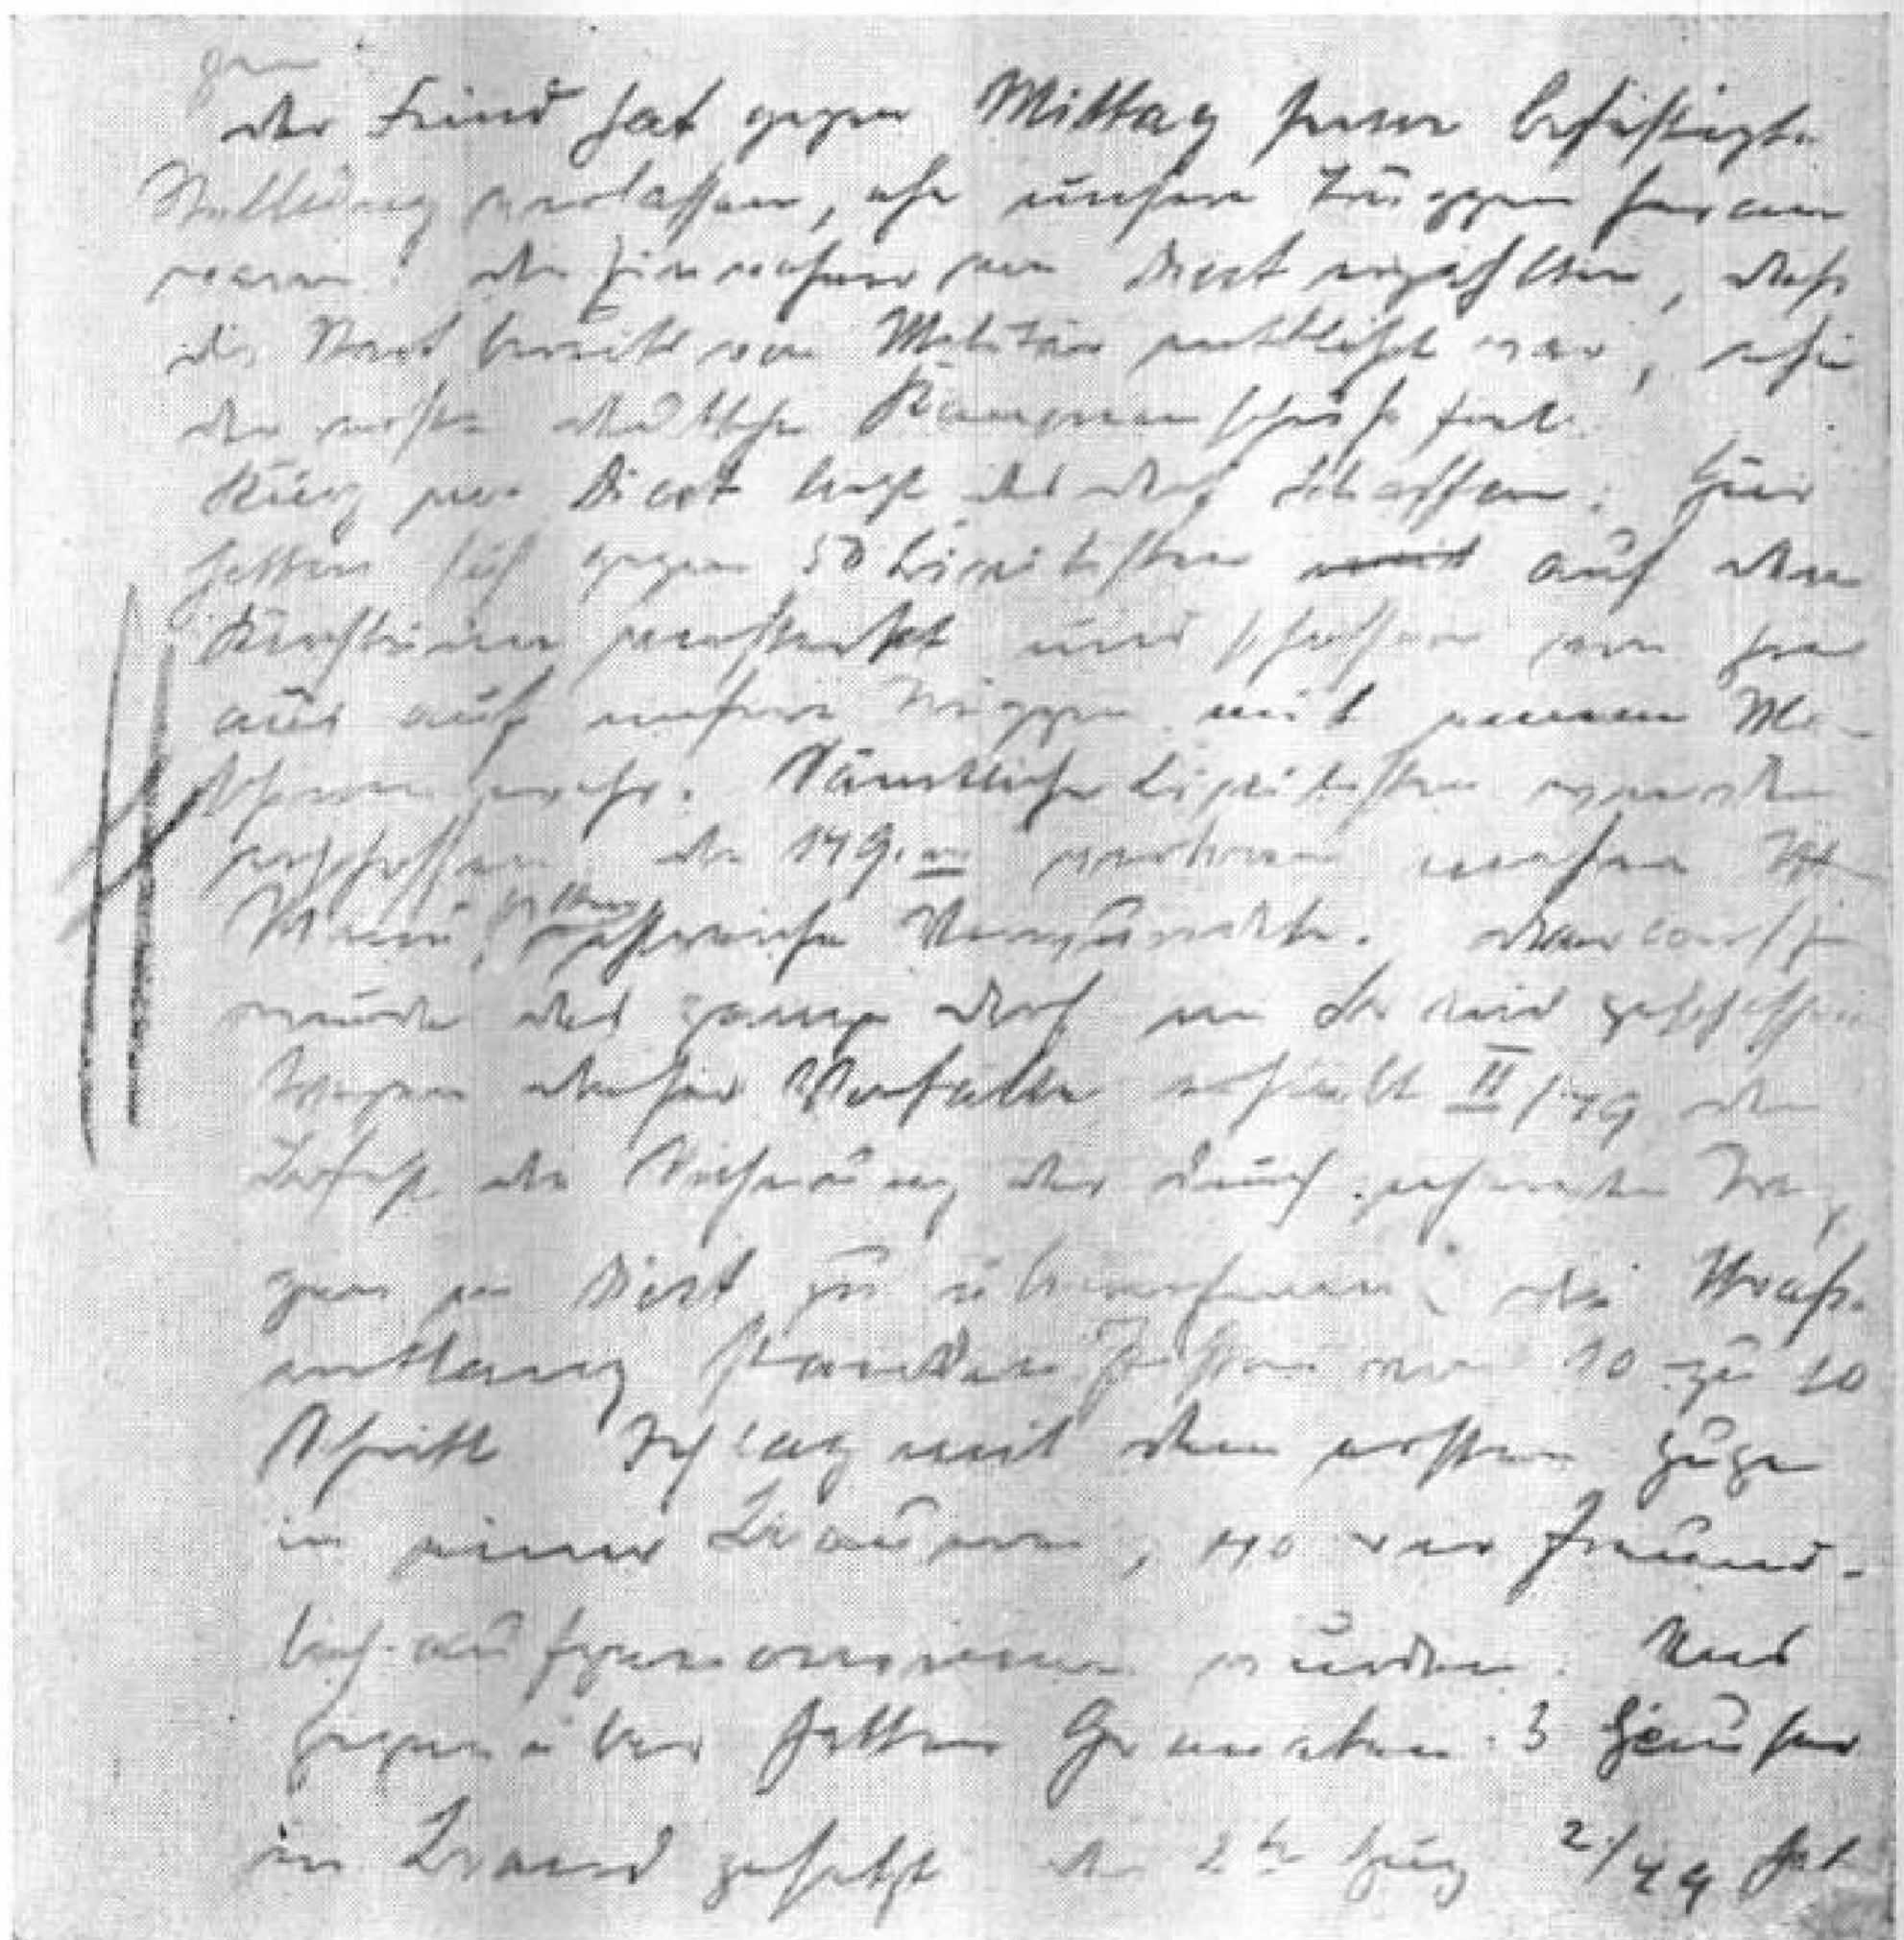 gen
Der Feind hat gegen Mittag seine befestigte
Stellung verlassen, ehe unsere Truppen heran
waren. Die Einwohner von Diest erzählten, dass
die Stadt bereits von Militär entblösst war, ehe
der erste deutsche Kanonenschuss fiel.
Kurz vor Diest liegt das Dorf Schaffen. Hier
hatten sich gegen 50 Civilisten auf dem
Kirchturme versteckt und schossen von hier
aus auf unsere Truppen mit einem Ma-
schinengewehr. Sämtliche Civilisten wurden
erschossen. Die 149.er verloren
Mann, hatten zahlreiche Verwundete.
wurde das ganze Dorf in Brand geschossen
Wegen dieser Vorfälle erhielt II/49 den
Befehl die Sicherung der durchziehenden Trup-
pen in Diest zu übernehmen. Die Strasse
entlang standen Posten von 10 zu 10
Schritt. Ich lag mit dem ersten Zuge
in einer Brauerei, wo wir freund-
lich aufgenommen wurden. Uns
gegenüber hatten Granaten 3 Häuser
in Brand gesetzt. Der 2te Zug 2./49 hat